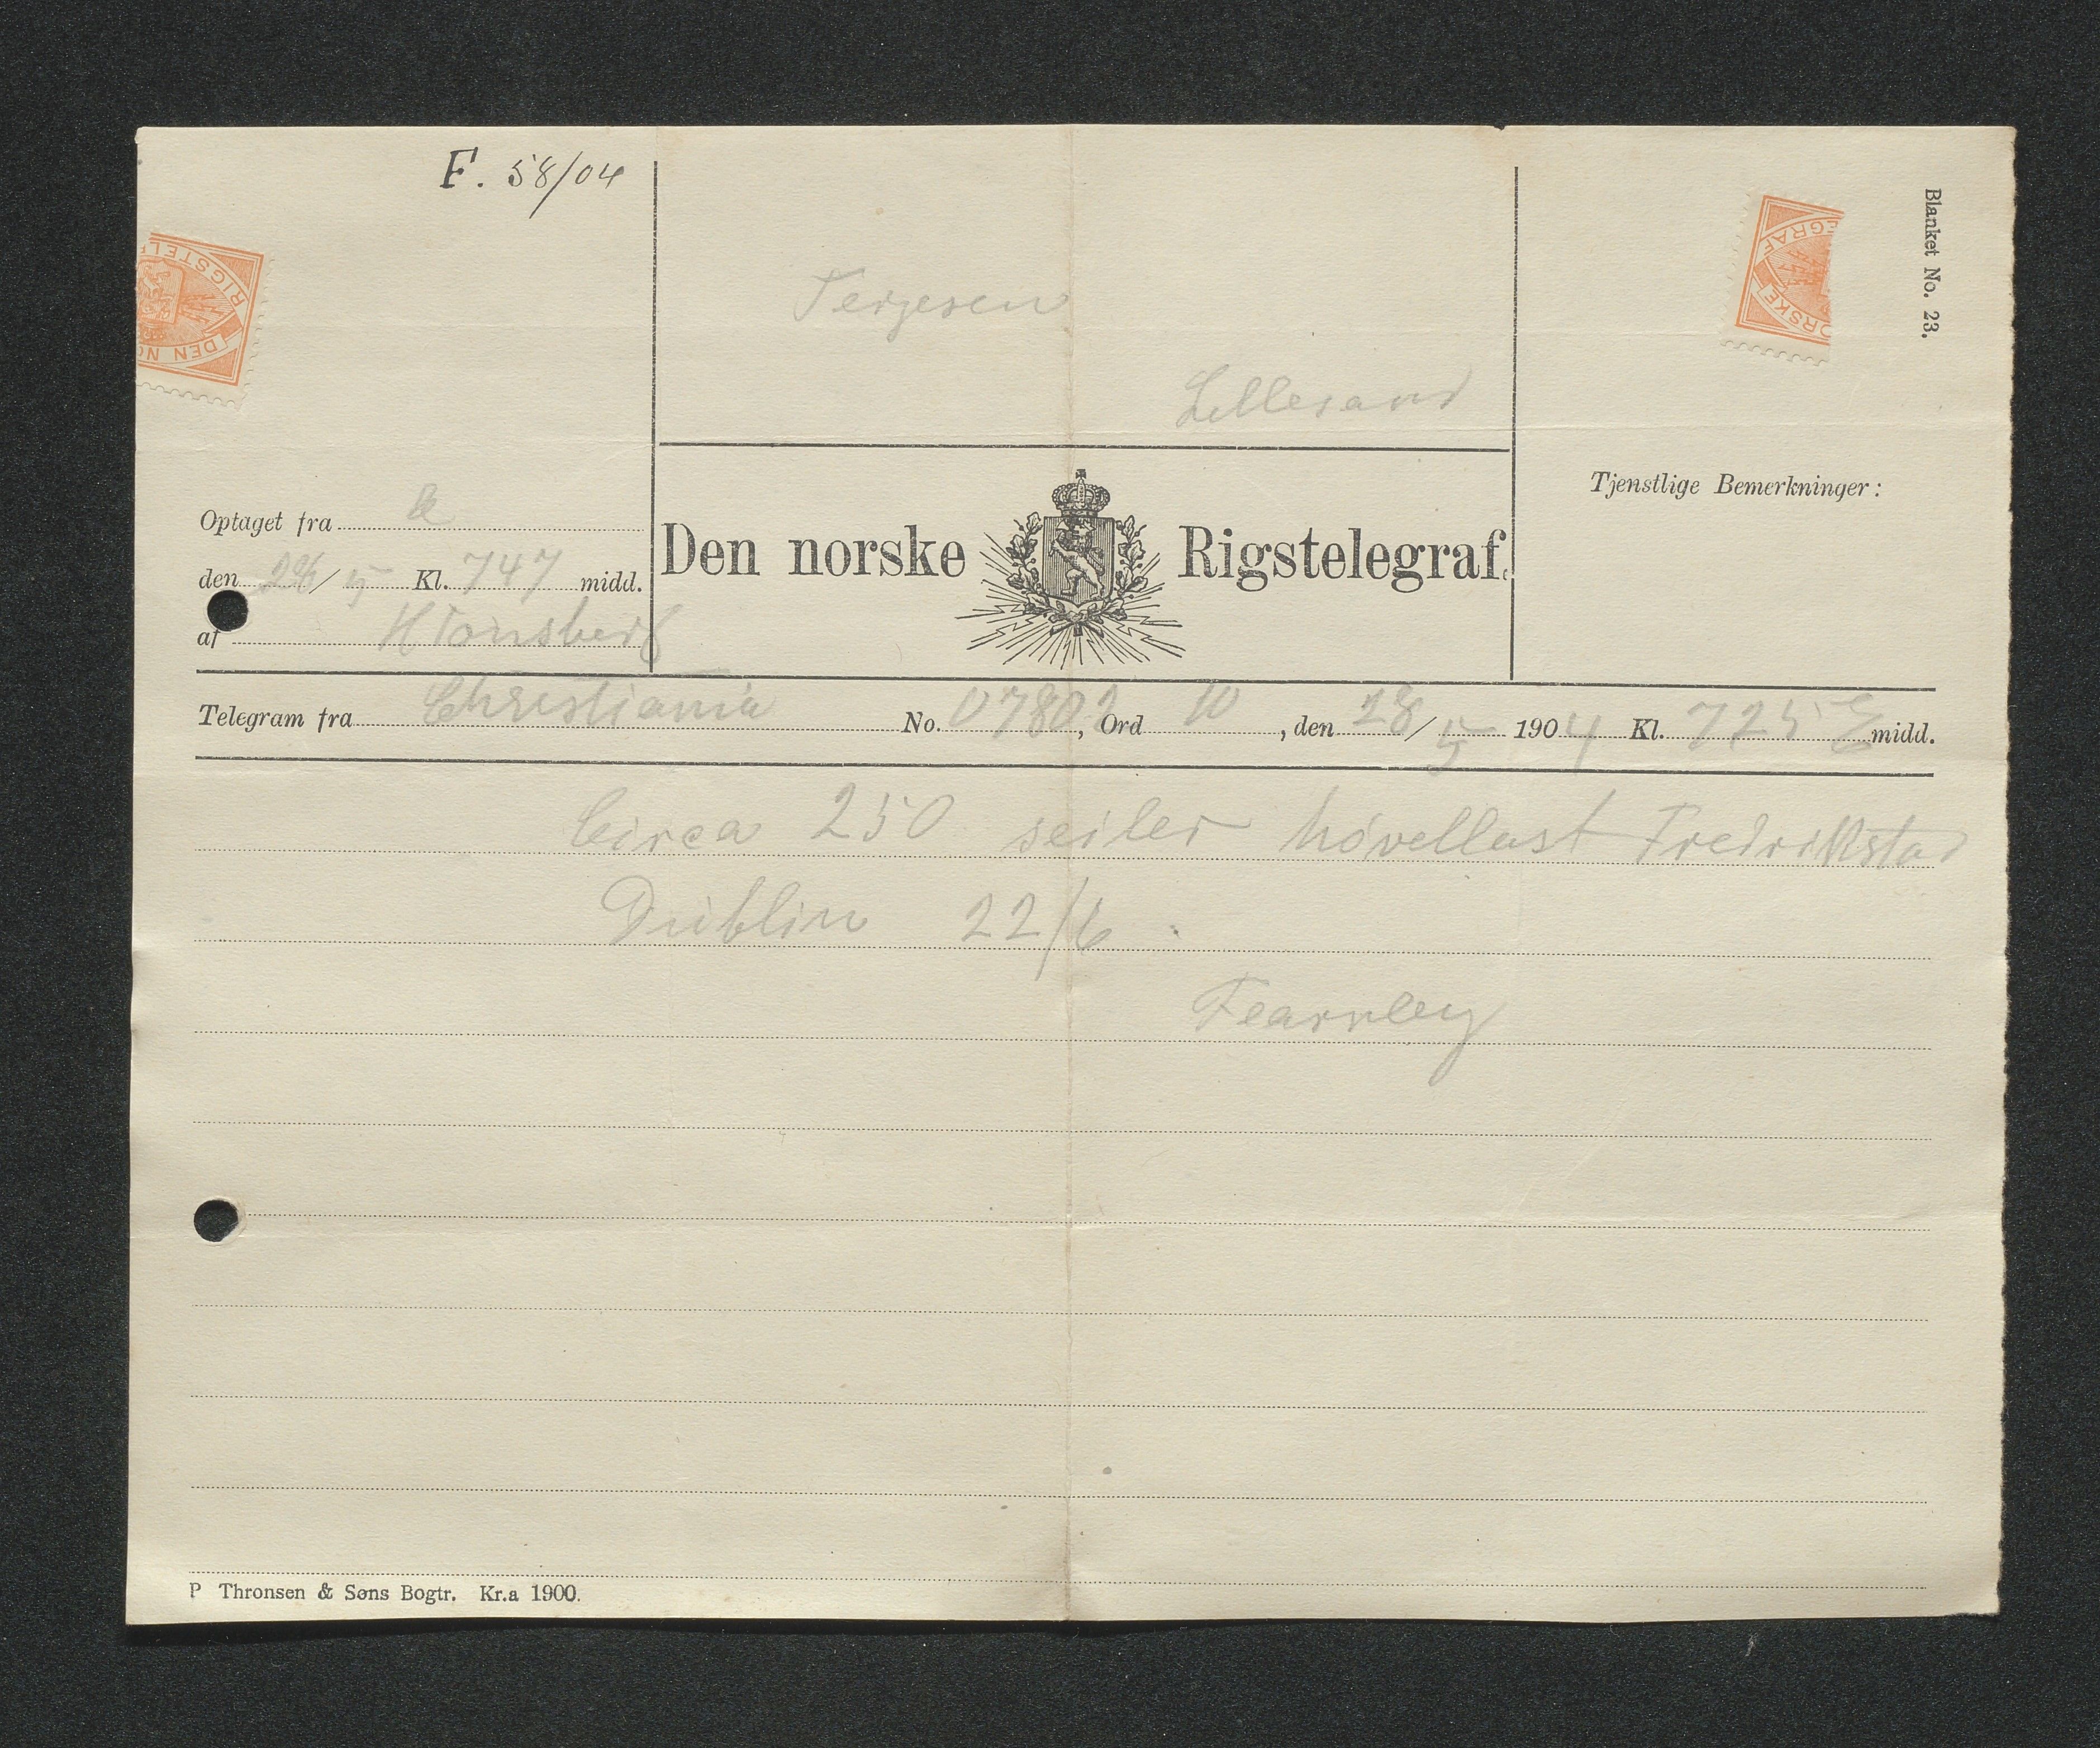 F. 58/04
Blanket No. 23.
RIGSTELE
DEN NO
EGRAF
ORSKE
Terjesen
Lillesand
Tjenstlige Bemerkninger:
Optaget fra
den 28/5 Kl. 747 midd.
af H Tønsberg
Den norske Rigstelegraf.
Telegram fra Christiania No. 07802, Ord 10, den 28/5 1904 Kl. 725 E midd.
Circa 250 seiler hövellast Fredrikstad
Dublin 22/6.
Fearnley
P Thronsen & Søns Bogtr. Kr.a 1900.